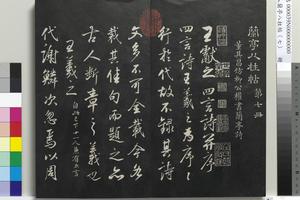 蘭亭八柱帖 第七冊
董其昌仿柳公權書蘭亭詩
王獻之四言詩并序
四言詩王羲之為序序
行於代故不錄其詩
文多不可全載今各
裁其佳句而題之亦
古人斷章之義也
王羲之 自此已下十一人五言
代謝鱗次忽焉以周